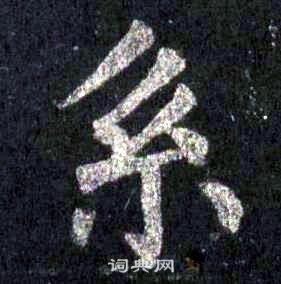 系
词典网